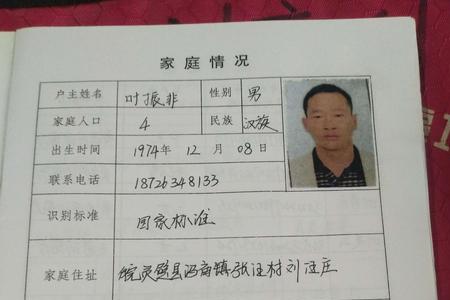 家庭情况
户主姓名 叶振非 性别 男
家庭人口 4 民族 汉族
出生时间 1974年 12 月 08 日
联系电话 18726348133
识别标准 国家标准
家庭住址 皖灵璧县冯庙镇张汪村刘汪庄